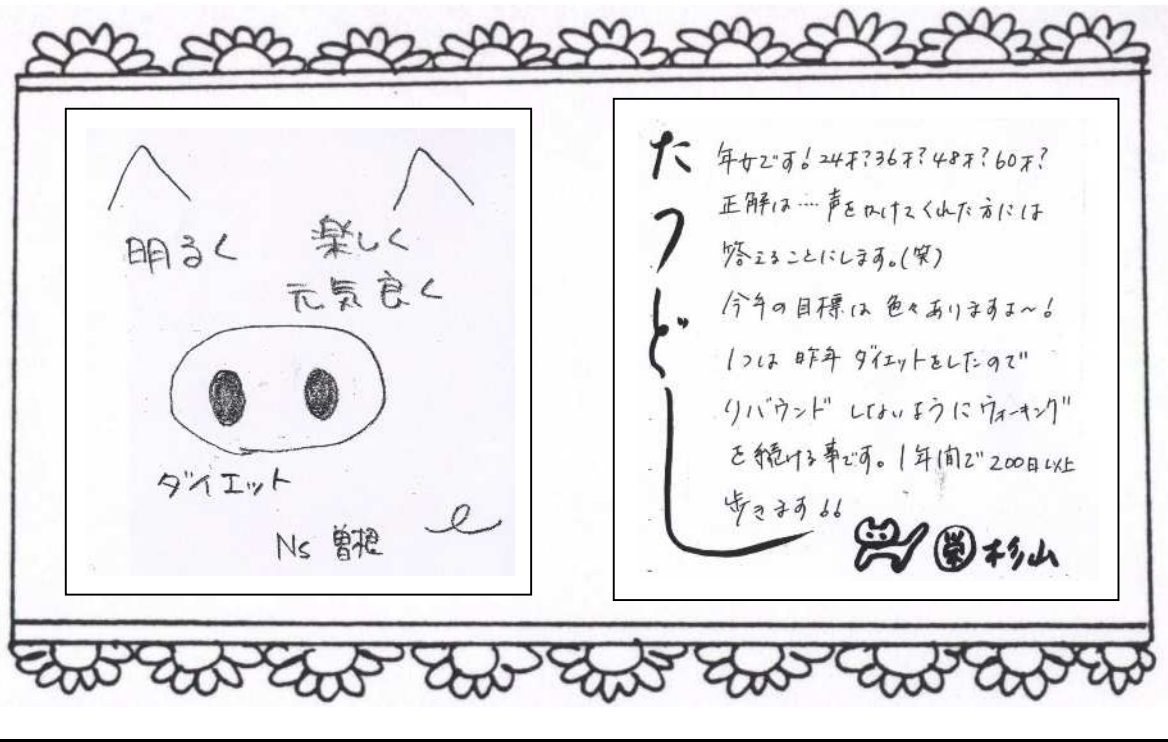 明るく
楽しく
元気良く
ダイエット
Ns 曽根
たつどし
年女です! 24才?36才?48才?60才?
正解は…声をかけてくれた方には
答えることにします。(笑)
今年の目標は色々ありますよ~!
1つは昨年ダイエットをしたので
リバウンドしないようにウォーキング
を続ける事です。1年間で200日以上
歩きます!!
栄 杉山